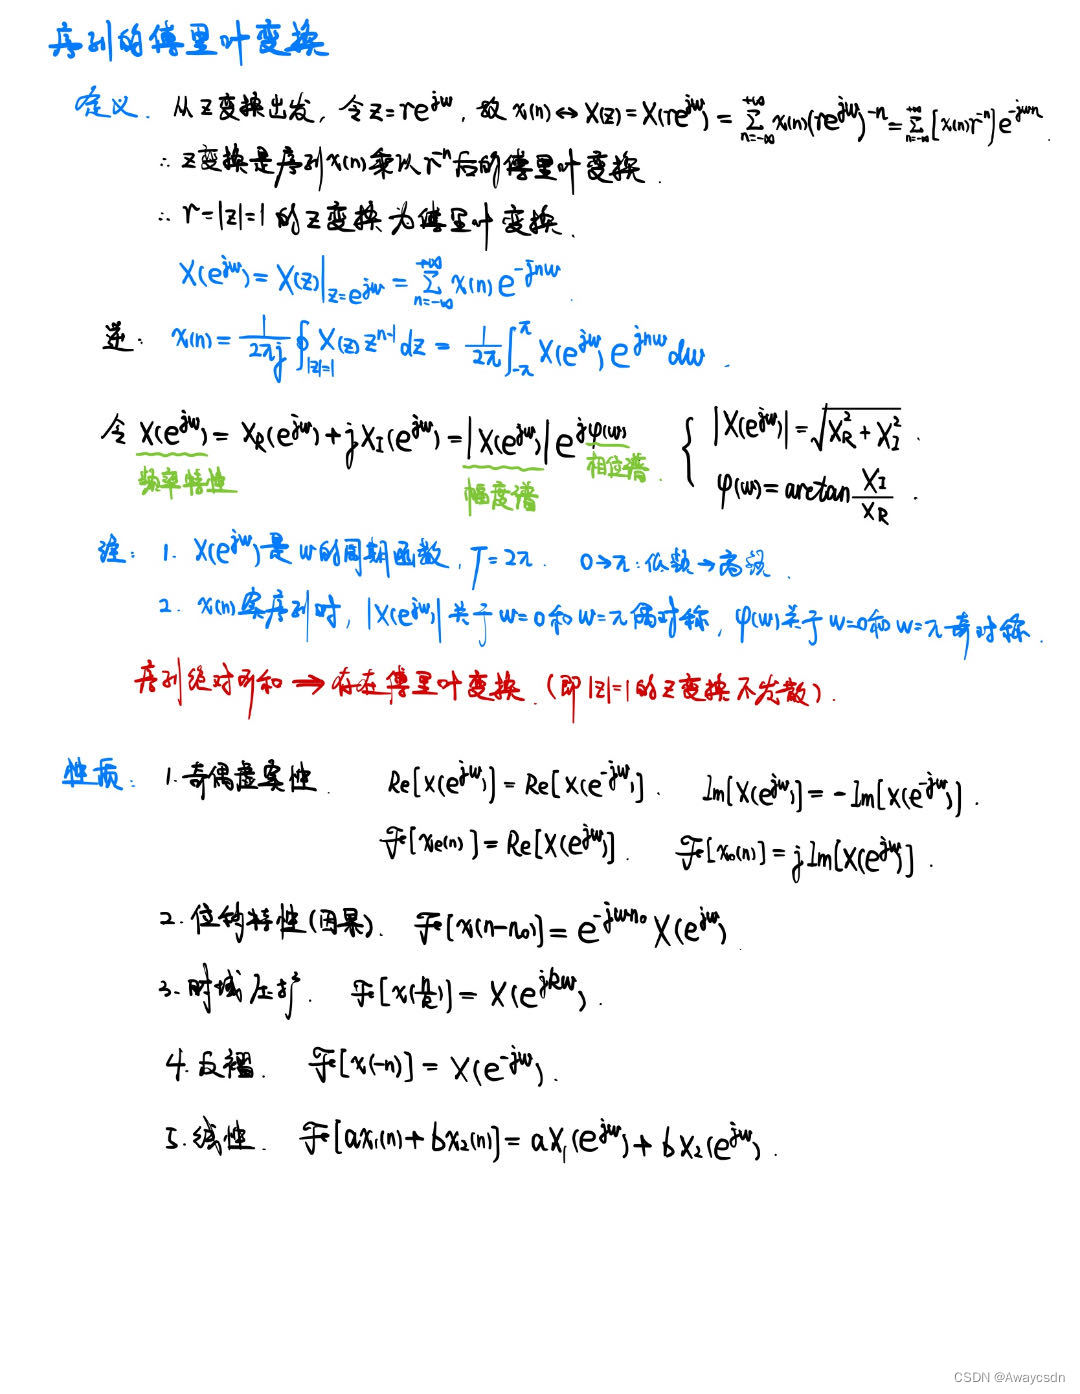 序列的傅里叶变换
定义. 从z变换出发, 令z=re^{jw}, 故 x(n)↔X(z)=X(re^{jw})=∑_{n=-∞}^{+∞} x(n)(re^{jw})^{-n}=∑_{n=-∞}^{+∞}[x(n)r^{-n}]e^{-jwn}.
∴ z变换是序列x(n)乘以r^{-n}后的傅里叶变换.
∴ r=|z|=1的z变换为傅里叶变换.
X(e^{jw})=X(z)|_{z=e^{jw}}=∑_{n=-∞}^{+∞} x(n)e^{-jnw}.
逆: x(n)=\frac{1}{2πj}∮_{|z|=1}X(z)z^{n-1}dz=\frac{1}{2π}∫_{-π}^{π}X(e^{jw})e^{jnw}dw.
令 X(e^{jw})=X_R(e^{jw})+jX_I(e^{jw})=|X(e^{jw})|e^{jφ(w)} { |X(e^{jw})|=\sqrt{X_R^2+X_I^2}.
频率特性 幅度谱 相位谱. φ(w)=arctan\frac{X_I}{X_R}.
注: 1. X(e^{jw})是w的周期函数, T=2π. 0→π:低频→高频.
2. x(n)实序列时, |X(e^{jw})|关于w=0和w=π偶对称, φ(w)关于w=0和w=π奇对称.
序列绝对可和⇒存在傅里叶变换.(即|z|=1的z变换不发散).
性质: 1.奇偶虚实性. Re[X(e^{jw})]=Re[X(e^{-jw})]. Im[X(e^{jw})]=-Im[X(e^{-jw})].
ℱ[x_e(n)]=Re[X(e^{jw})]. ℱ[x_o(n)]=jIm[X(e^{jw})].
2.位移特性(因果). ℱ[x(n-n_0)]=e^{-jwn_0}X(e^{jw}).
3.时域压扩. ℱ[x(\frac{n}{k})]=X(e^{jkw}).
4.反褶. ℱ[x(-n)]=X(e^{-jw}).
5.线性. ℱ[ax_1(n)+bx_2(n)]=aX_1(e^{jw})+bX_2(e^{jw}).
CSDN @Awaycsdn